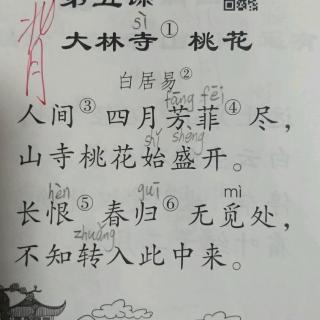 第五课
背
sì
大林寺① 桃花
白居易②
fāng fēi
人间③四月芳菲④尽，
shǐ shèng
山寺桃花始盛开。
hèn guī mì
长恨⑤春归⑥无觅处，
zhuǎng
不知转入此中来。